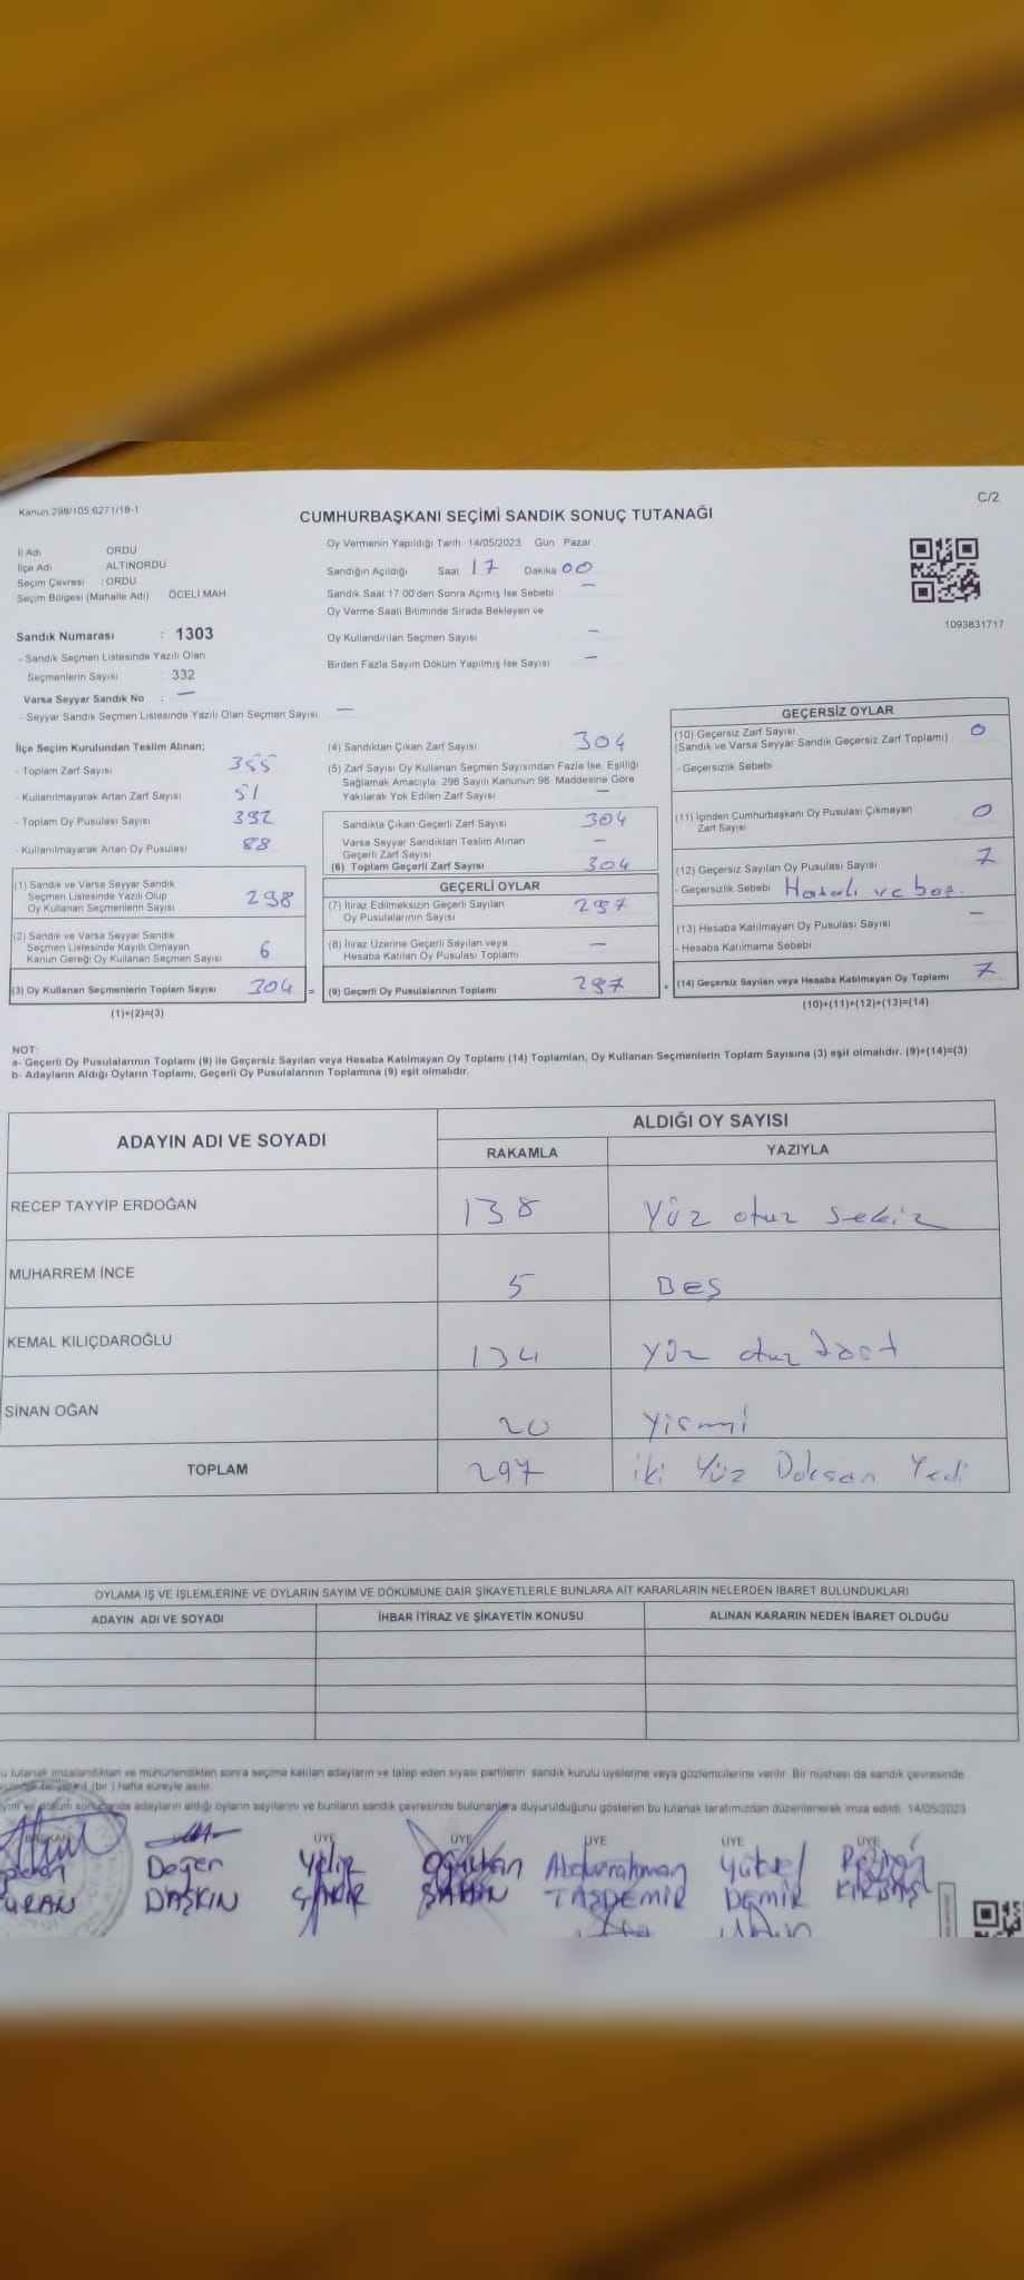 Kanun 298/105 6271/18-1
C/2
CUMHURBAŞKANI SEÇİMİ SANDIK SONUÇ TUTANAĞI
İl Adı ORDU
İlçe Adı ALTINORDU
Seçim Çevresi : ORDU
Seçim Bölgesi (Mahalle Adı) ÖCELİ MAH
Oy Vermenin Yapıldığı Tarih 14/05/2023 Gün Pazar
Sandığın Açıldığı Saat 17 Dakika 00
Sandık Saat 17 00'den Sonra Açımış İse Sebebi —
Oy Verme Saati Bitiminde Sırada Bekleyen ve
Oy Kullandırılan Seçmen Sayısı —
Birden Fazla Sayım Döküm Yapılmış İse Sayısı —
1093831717
Sandık Numarası : 1303
- Sandık Seçmen Listesinde Yazılı Olan
Seçmenlerin Sayısı 332
Varsa Seyyar Sandık No : —
- Seyyar Sandık Seçmen Listesinde Yazılı Olan Seçmen Sayısı —
İlçe Seçim Kurulundan Teslim Alınan;
- Toplam Zarf Sayısı 355
- Kullanılmayarak Artan Zarf Sayısı 51
- Toplam Oy Pusulası Sayısı 392
- Kullanılmayarak Artan Oy Pusulası 88
(1) Sandık ve Varsa Seyyar Sandık
Seçmen Listesinde Yazılı Olup
Oy Kullanan Seçmenlerin Sayısı 298
(2) Sandık ve Varsa Seyyar Sandık
Seçmen Listesinde Kayıtlı Olmayan
Kanun Gereği Oy Kullanan Seçmen Sayısı 6
(3) Oy Kullanan Seçmenlerin Toplam Sayısı 304 =
(1)+(2)=(3)
(4) Sandıktan Çıkan Zarf Sayısı 304
(5) Zarf Sayısı Oy Kullanan Seçmen Sayısından Fazla İse, Eşitliği
Sağlamak Amacıyla 298 Sayılı Kanunun 98. Maddesine Göre
Yakılarak Yok Edilen Zarf Sayısı —
Sandıkta Çıkan Geçerli Zarf Sayısı 304
Varsa Seyyar Sandıktan Teslim Alınan
Geçerli Zarf Sayısı —
(6) Toplam Geçerli Zarf Sayısı 304
GEÇERLİ OYLAR
(7) İtiraz Edilmeksizin Geçerli Sayılan
Oy Pusulalarının Sayısı 297
(8) İtiraz Üzerine Geçerli Sayılan veya
Hesaba Katılan Oy Pusulası Toplamı —
(9) Geçerli Oy Pusulalarının Toplamı 297 +
GEÇERSİZ OYLAR
(10) Geçersiz Zarf Sayısı 0
(Sandık ve Varsa Seyyar Sandık Geçersiz Zarf Toplamı)
- Geçersizlik Sebebi
(11) İçinden Cumhurbaşkanı Oy Pusulası Çıkmayan
Zarf Sayısı 0
(12) Geçersiz Sayılan Oy Pusulası Sayısı 7
- Geçersizlik Sebebi Hatalı ve boş.
(13) Hesaba Katılmayan Oy Pusulası Sayısı —
- Hesaba Katılmama Sebebi
(14) Geçersiz Sayılan veya Hesaba Katılmayan Oy Toplamı 7
(10)+(11)+(12)+(13)=(14)
NOT:
a- Geçerli Oy Pusulalarının Toplamı (9) ile Geçersiz Sayılan veya Hesaba Katılmayan Oy Toplamı (14) Toplamları, Oy Kullanan Seçmenlerin Toplam Sayısına (3) eşit olmalıdır. (9)+(14)=(3)
b- Adayların Aldığı Oyların Toplamı, Geçerli Oy Pusulalarının Toplamına (9) eşit olmalıdır.
ADAYIN ADI VE SOYADI
ALDIĞI OY SAYISI
RAKAMLA YAZIYLA
RECEP TAYYİP ERDOĞAN 138 Yüz otuz sekiz
MUHARREM İNCE 5 BEŞ
KEMAL KILIÇDAROĞLU 134 Yüz otuz dört
SİNAN OĞAN 20 Yirmi
TOPLAM 297 iki Yüz Doksan Yedi
OYLAMA İŞ VE İŞLEMLERİNE VE OYLARIN SAYIM VE DÖKÜMÜNE DAİR ŞİKAYETLERLE BUNLARA AİT KARARLARIN NELERDEN İBARET BULUNDUKLARI
ADAYIN ADI VE SOYADI İHBAR İTİRAZ VE ŞİKAYETİN KONUSU ALINAN KARARIN NEDEN İBARET OLDUĞU
u tutanak imzalandıktan ve mühürlendikten sonra seçime katılan adayların ve talep eden siyasi partilerin sandık kurulu üyelerine veya gözlemcilerine verilir. Bir nüshası da sandık çevresinde
(bir) hafta süreyle asılır.
adayların aldığı oyların sayılarını ve bunların sandık çevresinde bulunanlara duyurulduğunu gösteren bu tutanak tarafımızdan düzenlenerek imza edildi. 14/05/2023
ÜYE ÜYE ÜYE ÜYE ÜYE
Değer Yeliz Oğuzhan Abdurrahman Yüksel
URAN DAŞKIN ŞAHİN TAŞDEMİR DEMİR KIRBAŞ